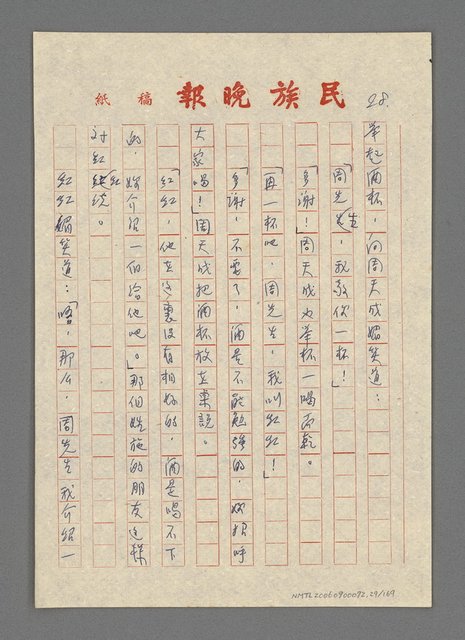 民族晚報 稿紙
28.
举起酒杯，向周天成媚笑道：
「周先生，我敬你一杯」！
「多謝！」周天成也举杯一喝而乾。
「再一杯吧，周先生，我叫红红！」
「多謝，不要了，酒是不能勉強的，妳招呼
大家喝！」周天成把酒杯放在桌說。
「红红，他在这裏没有相好的，酒是喝不下
的，妳介绍一個给他吧。」那個姓施的朋友这樣
对红红说。
红红媚笑道：「唔，那么，周先生我介绍一
NMTL20060900092.29/169